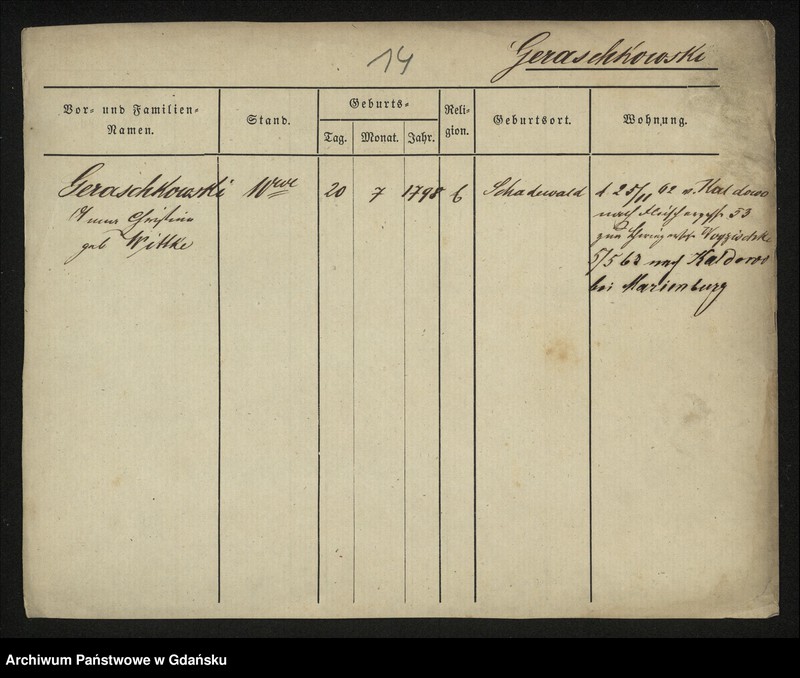 14
Geraschkowski
Vor- und Familien-
Namen.
Stand.
Geburts-
Tag.
Monat.
Jahr.
Reli-
gion.
Geburtsort.
Wohnung.
Geraschkowski
Christine
geb Wittke
Wwe
20
7
1798
Schadewald
d 25/11 62 v. Kaldowo
nach 53
5/5 63 nach Kaldowo
bei Marienburg
Archiwum Państwowe w Gdańsku